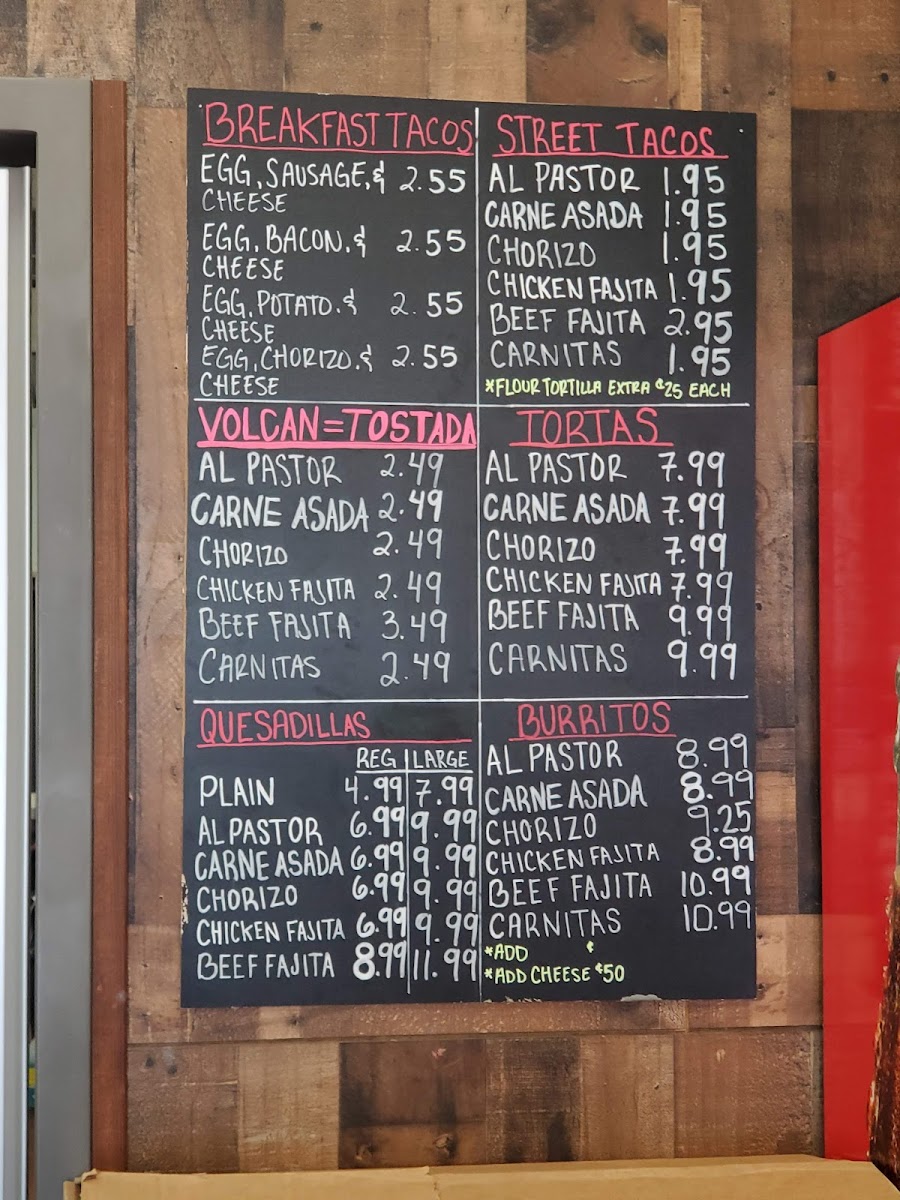 BREAKFAST TACOS
EGG, SAUSAGE, & 2.55
CHEESE
EGG, BACON, & 2.55
CHEESE
EGG, POTATO, & 2.55
CHEESE
EGG, CHORIZO, & 2.55
CHEESE
STREET TACOS
AL PASTOR 1.95
CARNE ASADA 1.95
CHORIZO 1.95
CHICKEN FAJITA 1.95
BEEF FAJITA 2.95
CARNITAS 1.95
*FLOUR TORTILLA EXTRA ¢25 EACH
VOLCAN=TOSTADA
AL PASTOR 2.49
CARNE ASADA 2.49
CHORIZO 2.49
CHICKEN FAJITA 2.49
BEEF FAJITA 3.49
CARNITAS 2.49
TORTAS
AL PASTOR 7.99
CARNE ASADA 7.99
CHORIZO 7.99
CHICKEN FAJITA 7.99
BEEF FAJITA 9.99
CARNITAS 9.99
QUESADILLAS
REG LARGE
PLAIN 4.99 7.99
AL PASTOR 6.99 9.99
CARNE ASADA 6.99 9.99
CHORIZO 6.99 9.99
CHICKEN FAJITA 6.99 9.99
BEEF FAJITA 8.99 11.99
BURRITOS
AL PASTOR 8.99
CARNE ASADA 8.99
CHORIZO 9.25
CHICKEN FAJITA 8.99
BEEF FAJITA 10.99
CARNITAS 10.99
*ADD ¢
*ADD CHEESE ¢50